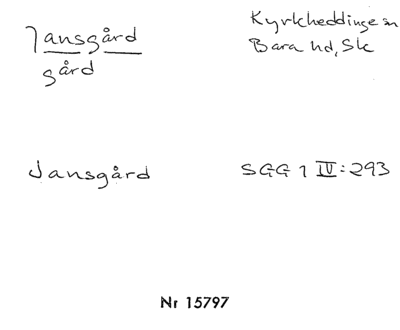 Jansgård
gård
Kyrkheddinge sn
Bara hd, Sk
Jansgård
SGG 1 IV:293
Nr 15797